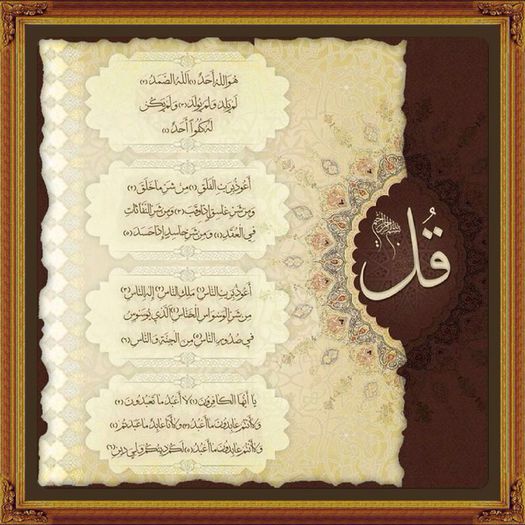 قُل
بسم الله الرحمن الرحيم
هُوَ اللهُ أَحَدٌ (١) اللهُ الصَّمَدُ (٢)
لَمْ يَلِدْ وَلَمْ يُولَدْ (٣) وَلَمْ يَكُنْ
لَهُ كُفُوًا أَحَدٌ (٤)
أَعُوذُ بِرَبِّ الْفَلَقِ (١) مِنْ شَرِّ مَا خَلَقَ (٢)
وَمِنْ شَرِّ غَاسِقٍ إِذَا وَقَبَ (٣) وَمِنْ شَرِّ النَّفَّاثَاتِ
فِي الْعُقَدِ (٤) وَمِنْ شَرِّ حَاسِدٍ إِذَا حَسَدَ (٥)
أَعُوذُ بِرَبِّ النَّاسِ (١) مَلِكِ النَّاسِ (٢) إِلَهِ النَّاسِ (٣)
مِنْ شَرِّ الْوَسْوَاسِ الْخَنَّاسِ (٤) الَّذِي يُوَسْوِسُ
فِي صُدُورِ النَّاسِ (٥) مِنَ الْجِنَّةِ وَالنَّاسِ (٦)
يَا أَيُّهَا الْكَافِرُونَ (١) لَا أَعْبُدُ مَا تَعْبُدُونَ (٢)
وَلَا أَنْتُمْ عَابِدُونَ مَا أَعْبُدُ (٣) وَلَا أَنَا عَابِدٌ مَا عَبَدْتُمْ (٤)
وَلَا أَنْتُمْ عَابِدُونَ مَا أَعْبُدُ (٥) لَكُمْ دِينُكُمْ وَلِيَ دِينِ (٦)